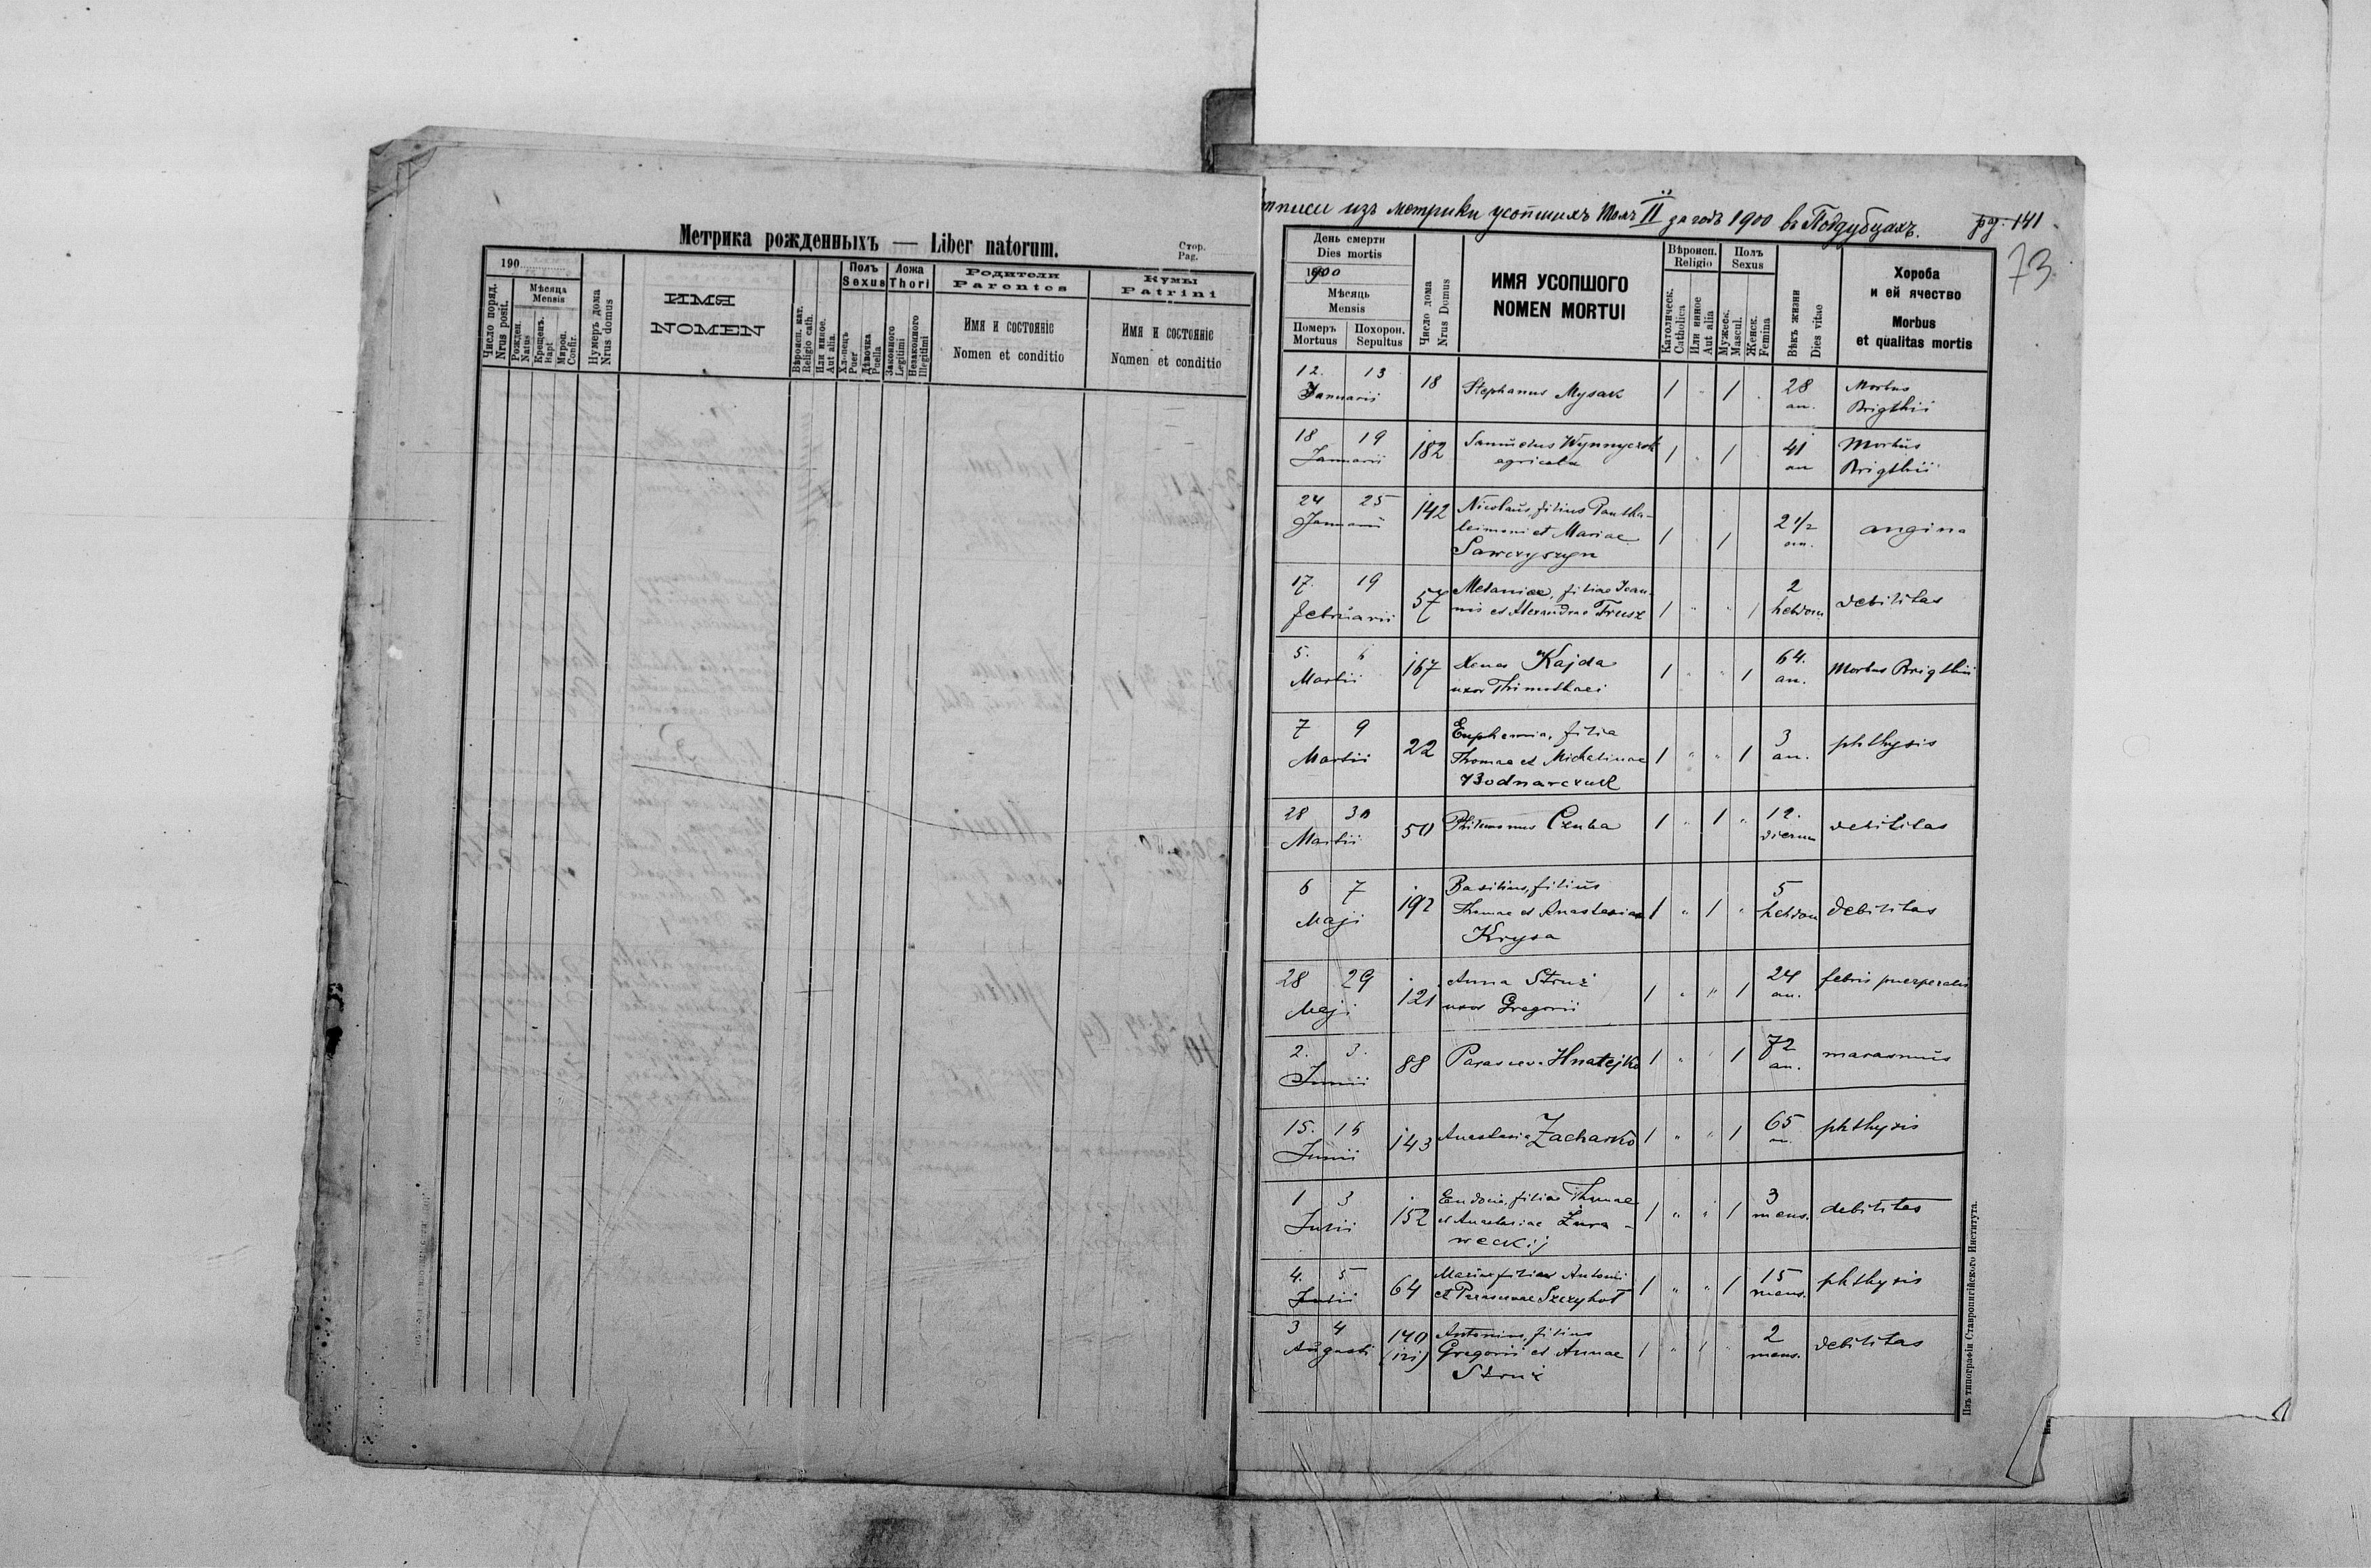 Метрика рожденныхъ — Liber natorum.
Стор.
Pag.
190
Число поряд.
Nrus posit.
Мѣсяца
Mensis
Рожден.
Natus
Крещенъ.
Bapt
Мѵроп.
Confir.
Нумеръ дома
Nrus domus
ИМЯ
NOMEN
Вѣроисп. кат.
Religio cath.
Или иное.
Aut alia.
Полъ
Sexus
Хл-пецъ
Puer
Дѣвочка
Puella
Ложа
Thori
Законного
Legitimi
Незаконного
Illegitimi
Родители
Parentes
Имя и состоянiе
Nomen et conditio
Кумы
Patrini
Имя и состоянiе
Nomen et conditio
изъ метрики усопшихъ Томъ II за годъ 1900 въ Поддубцахъ. pg. 141.
73
День смерти
Dies mortis
1900
Мѣсяць
Mensis
Померъ
Mortuus
Похорон.
Sepultus
Число дома
Nrus Domus
ИМЯ УСОПШОГО
NOMEN MORTUI
Вѣроисп.
Religio
Католическ.
Catholica
Или инное
Aut alia
Полъ
Sexus
Мужеск.
Mascul.
Женск.
Femina
Вѣкъ жизни
Dies vitae
Хороба
и ей ячество
Morbus
et qualitas mortis
12. 13 18 Stephanus Mysak 1 " 1 28 Morbus
Januarii an. Brigthii
18 19 182 Samuelus Wynnyczuk 1 " 1 41 Morbus
Januarii agricola an Brigthii
24 25 142 Nicolaus, filius Pantha-
Januarii leimoni et Mariae 1 1 2 1/2 an. angina
Sawczyszyn
17. 19 57 Melaniae, filiae Joan- 2
februarii nis et Alexandrae Trusz 1 " " 1 hebdom debilitas
5. 6 167 Xenas Kajda 1 " " 1 64. Morbus Brigthii
Martii uxor Thimothaei an.
7 9 22 Euphemia, filia 3 phthysis
Martii Thomae et Michelinae 1 " " 1 an.
Bodnarczuk
28 30 50 Philemonus Czuba 1 " 1 " 12. debilitas
Martii dierum
6 7 192 Basilius, filius 5
Maji Thomae et Anastasiae 1 " 1 " hebdom debilitas
Krysa
28 29 121 Anna Struż 1 " " 1 24 febris puerperalis
Maji uxor Gregorii an.
2. 3. 88 Parasceva Hnatejko 1 " " 1 72 marasmus
Junii an.
15. 16 143 Anastasia Zacharko 1 " " 1 65 phthysis
Junii an.
1 3 152 Eudocia, filia Thomae 3
Julii et Anastasiae Żura- 1 " " 1 mens. debilitas
weckij
4. 5 64 Mariae filiae Antonii 1 " " 1 15 phthysis
Julii et Parascevae Szczyhoł mens.
3 4 140 Antonius, filius 2 debilitas
Augusti (121) Gregorii et Annae 1 " 1 " mens.
Struż
Изъ типографiи Ставропигiйского Института.